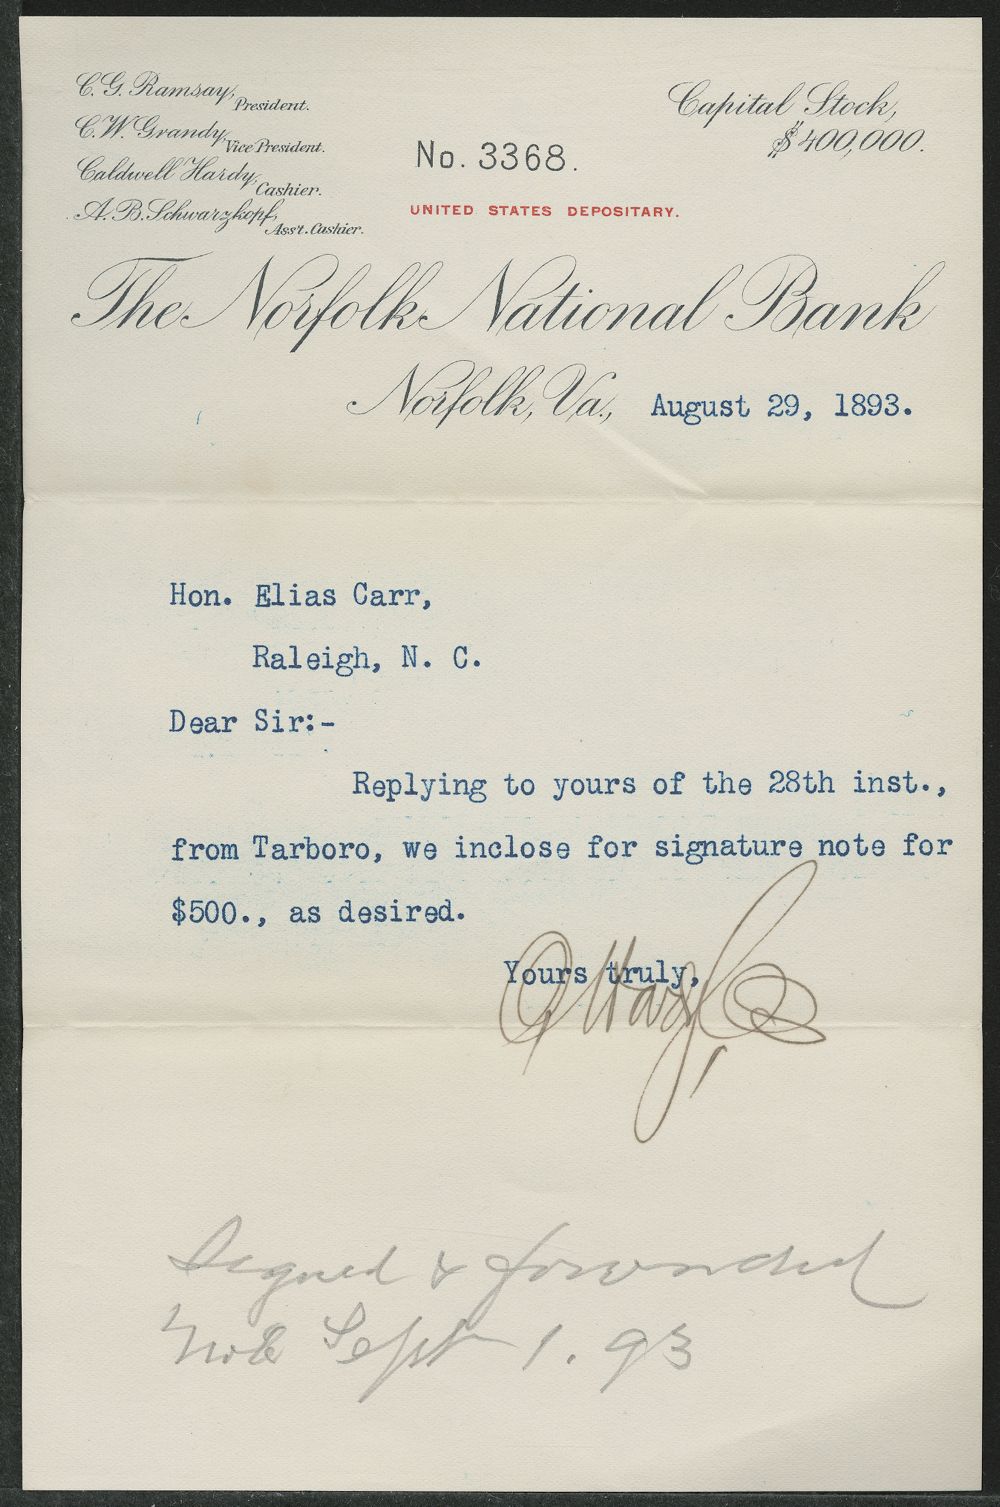 C. G. Ramsay, President.
C. W. Grandy, Vice President.
Caldwell Hardy, Cashier.
A. B. Schwarzkopf, Ass't. Cashier.
Capital Stock,
$400,000.
No. 3368.
UNITED STATES DEPOSITARY.
The Norfolk National Bank
Norfolk, Va., August 29, 1893.
Hon. Elias Carr,
Raleigh, N. C.
Dear Sir:-
Replying to yours of the 28th inst.,
from Tarboro, we inclose for signature note for
$500., as desired.
Yours truly,
Signed & forwarded
Sept 1. 93